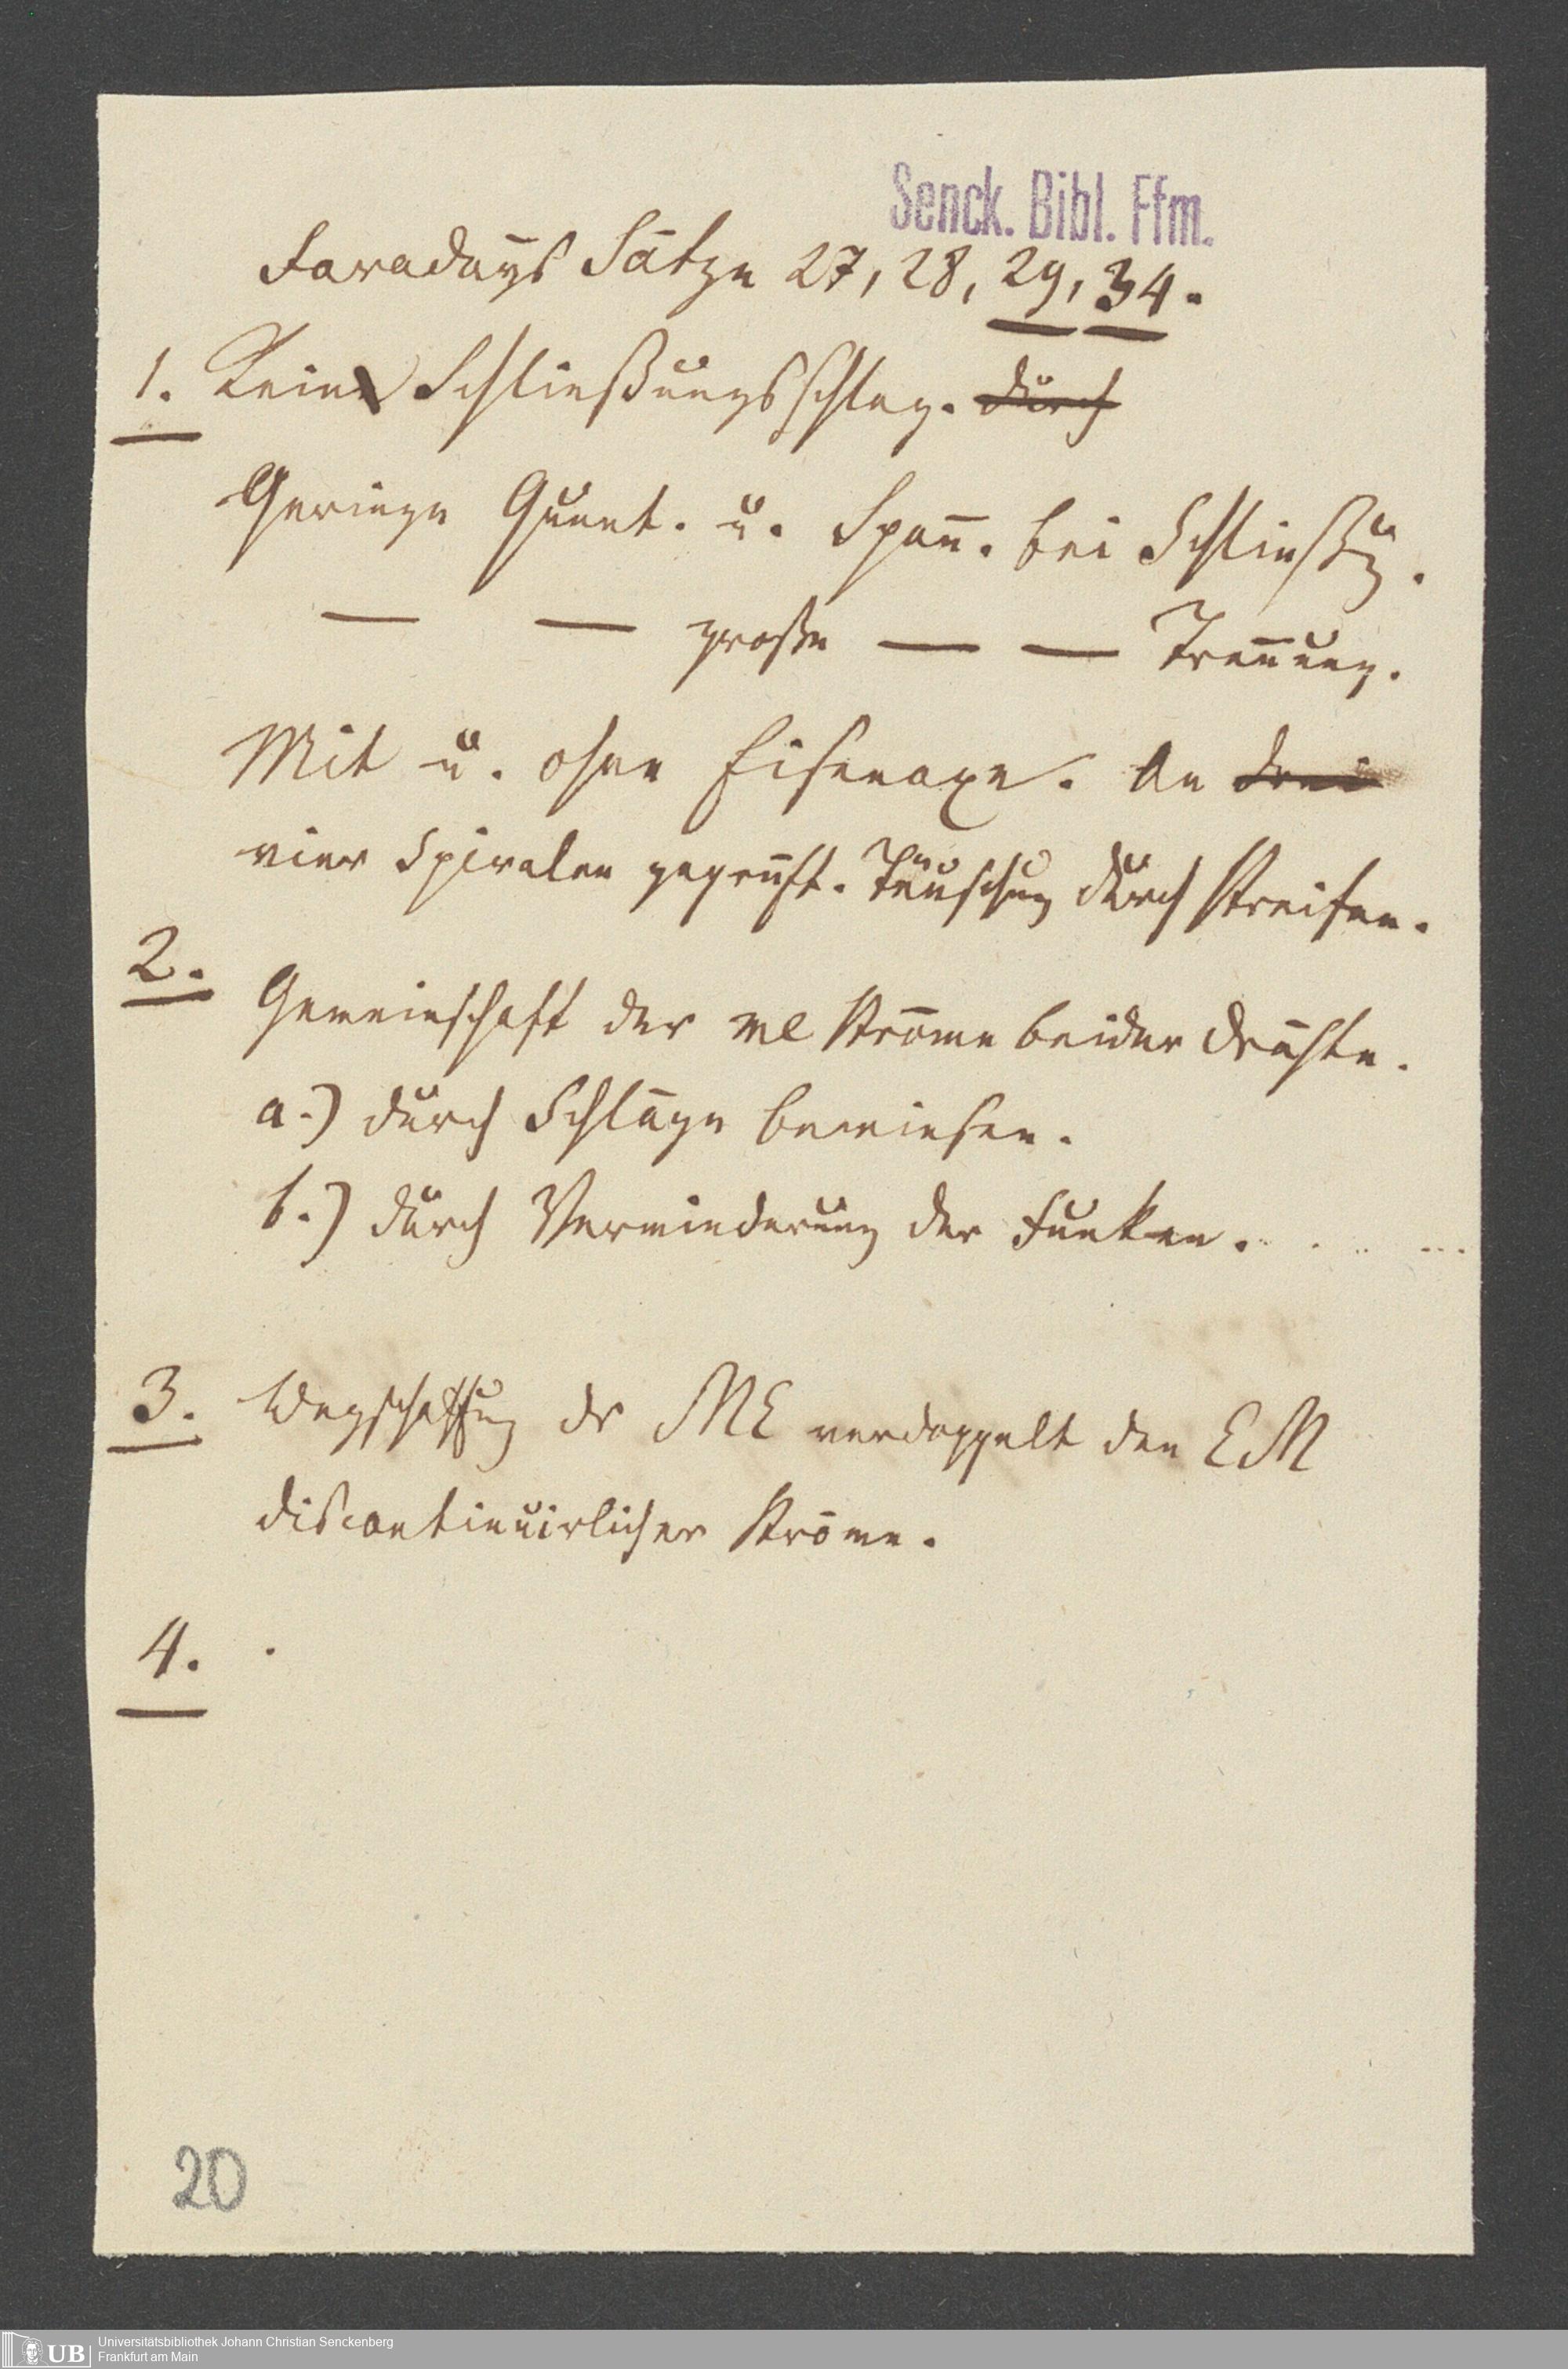 Senck. Bibl. Ffm.
Faradays Sätze 27, 28, 29, 34.
1. Kein Schließungsschlag. durch
Geringe Quant. u. Spañ. bei Schließg.
— — große — — Treñung.
Mit u. ohne Eisenaxe. An drei
vier Spiralen geprüft. Täuschung durch Streifen.
2.
Gemeinschaft der me Ströme beider Drähte.
a.) durch Schläge bewiesen.
b.) durch Verminderung der Funken.
3. Wegschaffung der ME verdoppelt den EM
discontinuirlicher Ströme.
4.
20
UB Universitätsbibliothek Johann Christian Senckenberg
Frankfurt am Main